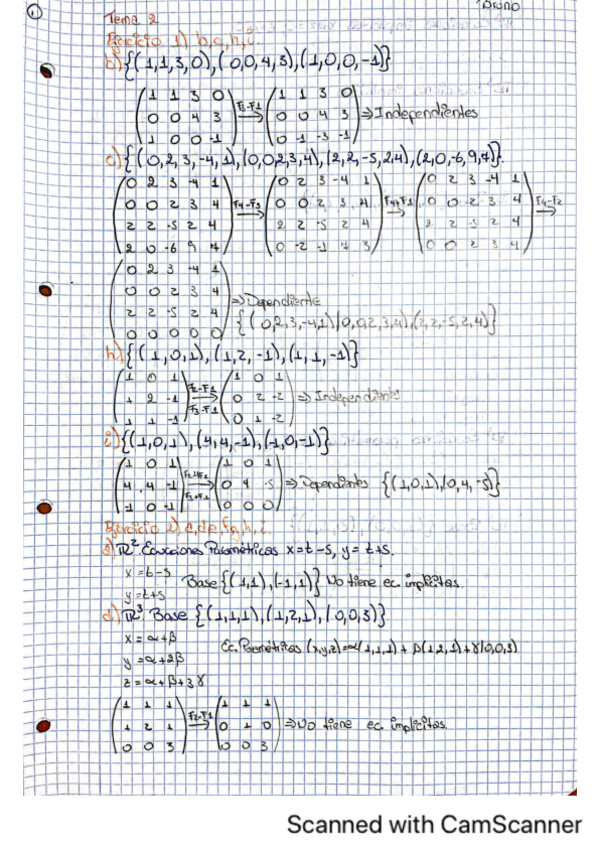 ①
Diono
Tema 2
Ejercicio 1) b,c,h,i.
b) {(1,1,3,0),(0,0,4,3),(1,0,0,-1)}
(1 1 3 0 / 0 0 4 3 / 1 0 0 -1) F3-F1 → (1 1 3 0 / 0 0 4 3 / 0 -1 -3 -1) ⇒ Independientes
c) {(0,2,3,-4,1),(0,0,2,3,4),(2,2,-5,2,4),(2,0,-6,9,7)}.
(0 2 3 -4 1 / 0 0 2 3 4 / 2 2 -5 2 4 / 2 0 -6 9 7) F4-F3 → (0 2 3 -4 1 / 0 0 2 3 4 / 2 2 -5 2 4 / 0 -2 -1 7 3) F4+F1 → (0 2 3 -4 1 / 0 0 2 3 4 / 2 2 -5 2 4 / 0 0 2 3 4) F4-F2 →
(0 2 3 -4 1 / 0 0 2 3 4 / 2 2 -5 2 4 / 0 0 0 0 0) ⇒ Dependiente
{(0,2,3,-4,1)(0,0,2,3,4),(2,2,-5,2,4)}
h) {(1,0,1),(1,2,-1),(1,1,-1)}
(1 0 1 / 1 2 -1 / 1 1 -1) F2-F1 F3-F1 → (1 0 1 / 0 2 -2 / 0 1 -2) ⇒ Independientes
i) {(1,0,1),(4,4,-1),(-1,0,-1)}
(1 0 1 / 4 4 -1 / -1 0 -1) → (1 0 1 / 0 4 -5 / 0 0 0) ⇒ Dependientes {(1,0,1),(0,4,-5)}
Ejercicio 2)
ℝ² Ecuaciones Paramétricas x=t-s, y=t+s.
x=t-s
y=t+s
Base {(1,1),(-1,1)} No tiene ec. implícitas.
d) ℝ³ Base {(1,1,1),(1,2,1),(0,0,3)}
x=α+β
y=α+2β
z=α+β+3γ
Ec. Paramétricas (x,y,z)=α(1,1,1)+β(1,2,1)+γ(0,0,3)
(1 1 1 / 1 2 1 / 0 0 3) F2-F1 → (1 1 1 / 0 1 0 / 0 0 3) ⇒ No tiene ec. implícitas.
Scanned with CamScanner